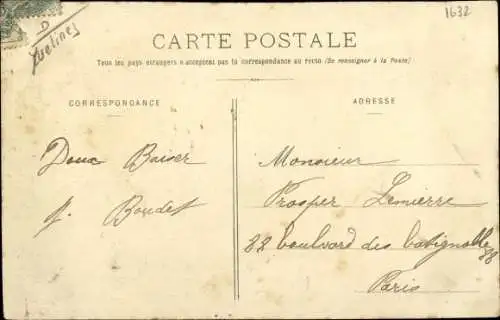 1632
D
Yvelines
CARTE POSTALE
Tous les pays étrangers n'acceptent pas la correspondance au recto (Se renseigner à la Poste)
CORRESPONDANCE
ADRESSE
Doux Baiser
J. Boudet
Monsieur
Prosper Lemierre
22 boulvard des Batignolles
Paris